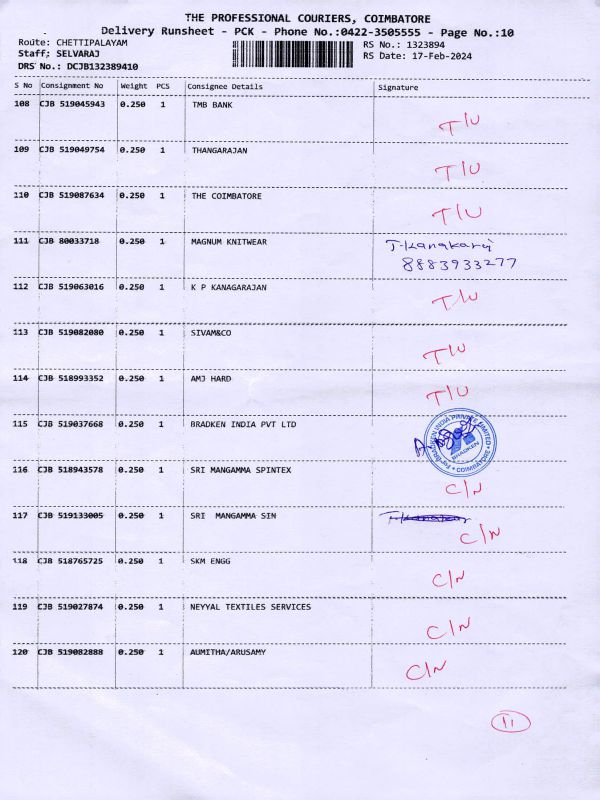 THE PROFESSIONAL COURIERS, COIMBATORE
Delivery Runsheet - PCK - Phone No.:0422-3505555 - Page No.:10
Route: CHETTIPALAYAM RS No.: 1323894
Staff; SELVARAJ RS Date: 17-Feb-2024
DRS No.: DCJB132389410
S No Consignment No Weight PCS Consignee Details Signature
108 CJB 519045943 0.250 1 TMB BANK T/U
109 CJB 519049754 0.250 1 THANGARAJAN T/U
110 CJB 519087634 0.250 1 THE COIMBATORE T/U
111 CJB 80033718 0.250 1 MAGNUM KNITWEAR T-Kanakaraj
8883933277
112 CJB 519063016 0.250 1 K P KANAGARAJAN T/U
113 CJB 519082080 0.250 1 SIVAM&CO T/U
114 CJB 518993352 0.250 1 AMJ HARD T/U
115 CJB 519037668 0.250 1 BRADKEN INDIA PVT LTD For BRADKEN INDIA PRIVATE LIMITED
BRADKEN
COIMBATORE
116 CJB 518943578 0.250 1 SRI MANGAMMA SPINTEX C/N
117 CJB 519133005 0.250 1 SRI MANGAMMA SIN C/N
118 CJB 518765725 0.250 1 SKM ENGG C/N
119 CJB 519027874 0.250 1 NEYYAL TEXTILES SERVICES C/N
120 CJB 519082888 0.250 1 AUMITHA/ARUSAMY C/N
11